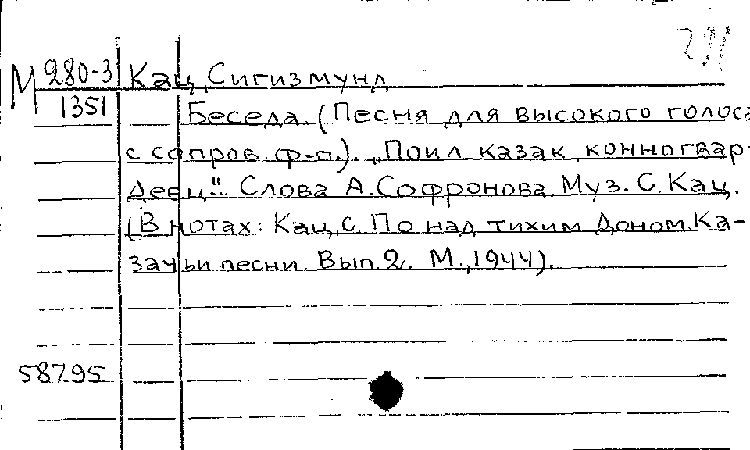 М 280-3 Кац, Сигизмунд
1351 Беседа. (Песня для высокого голоса
с сопров. ф-п.). „Поил казак, конногвар-
деец". Слова А. Софронова. Муз. С. Кац.
(В нотах: Кац, С. По над тихим Доном. Ка-
зачьи песни. Вып. 2. М., 1944).
58795